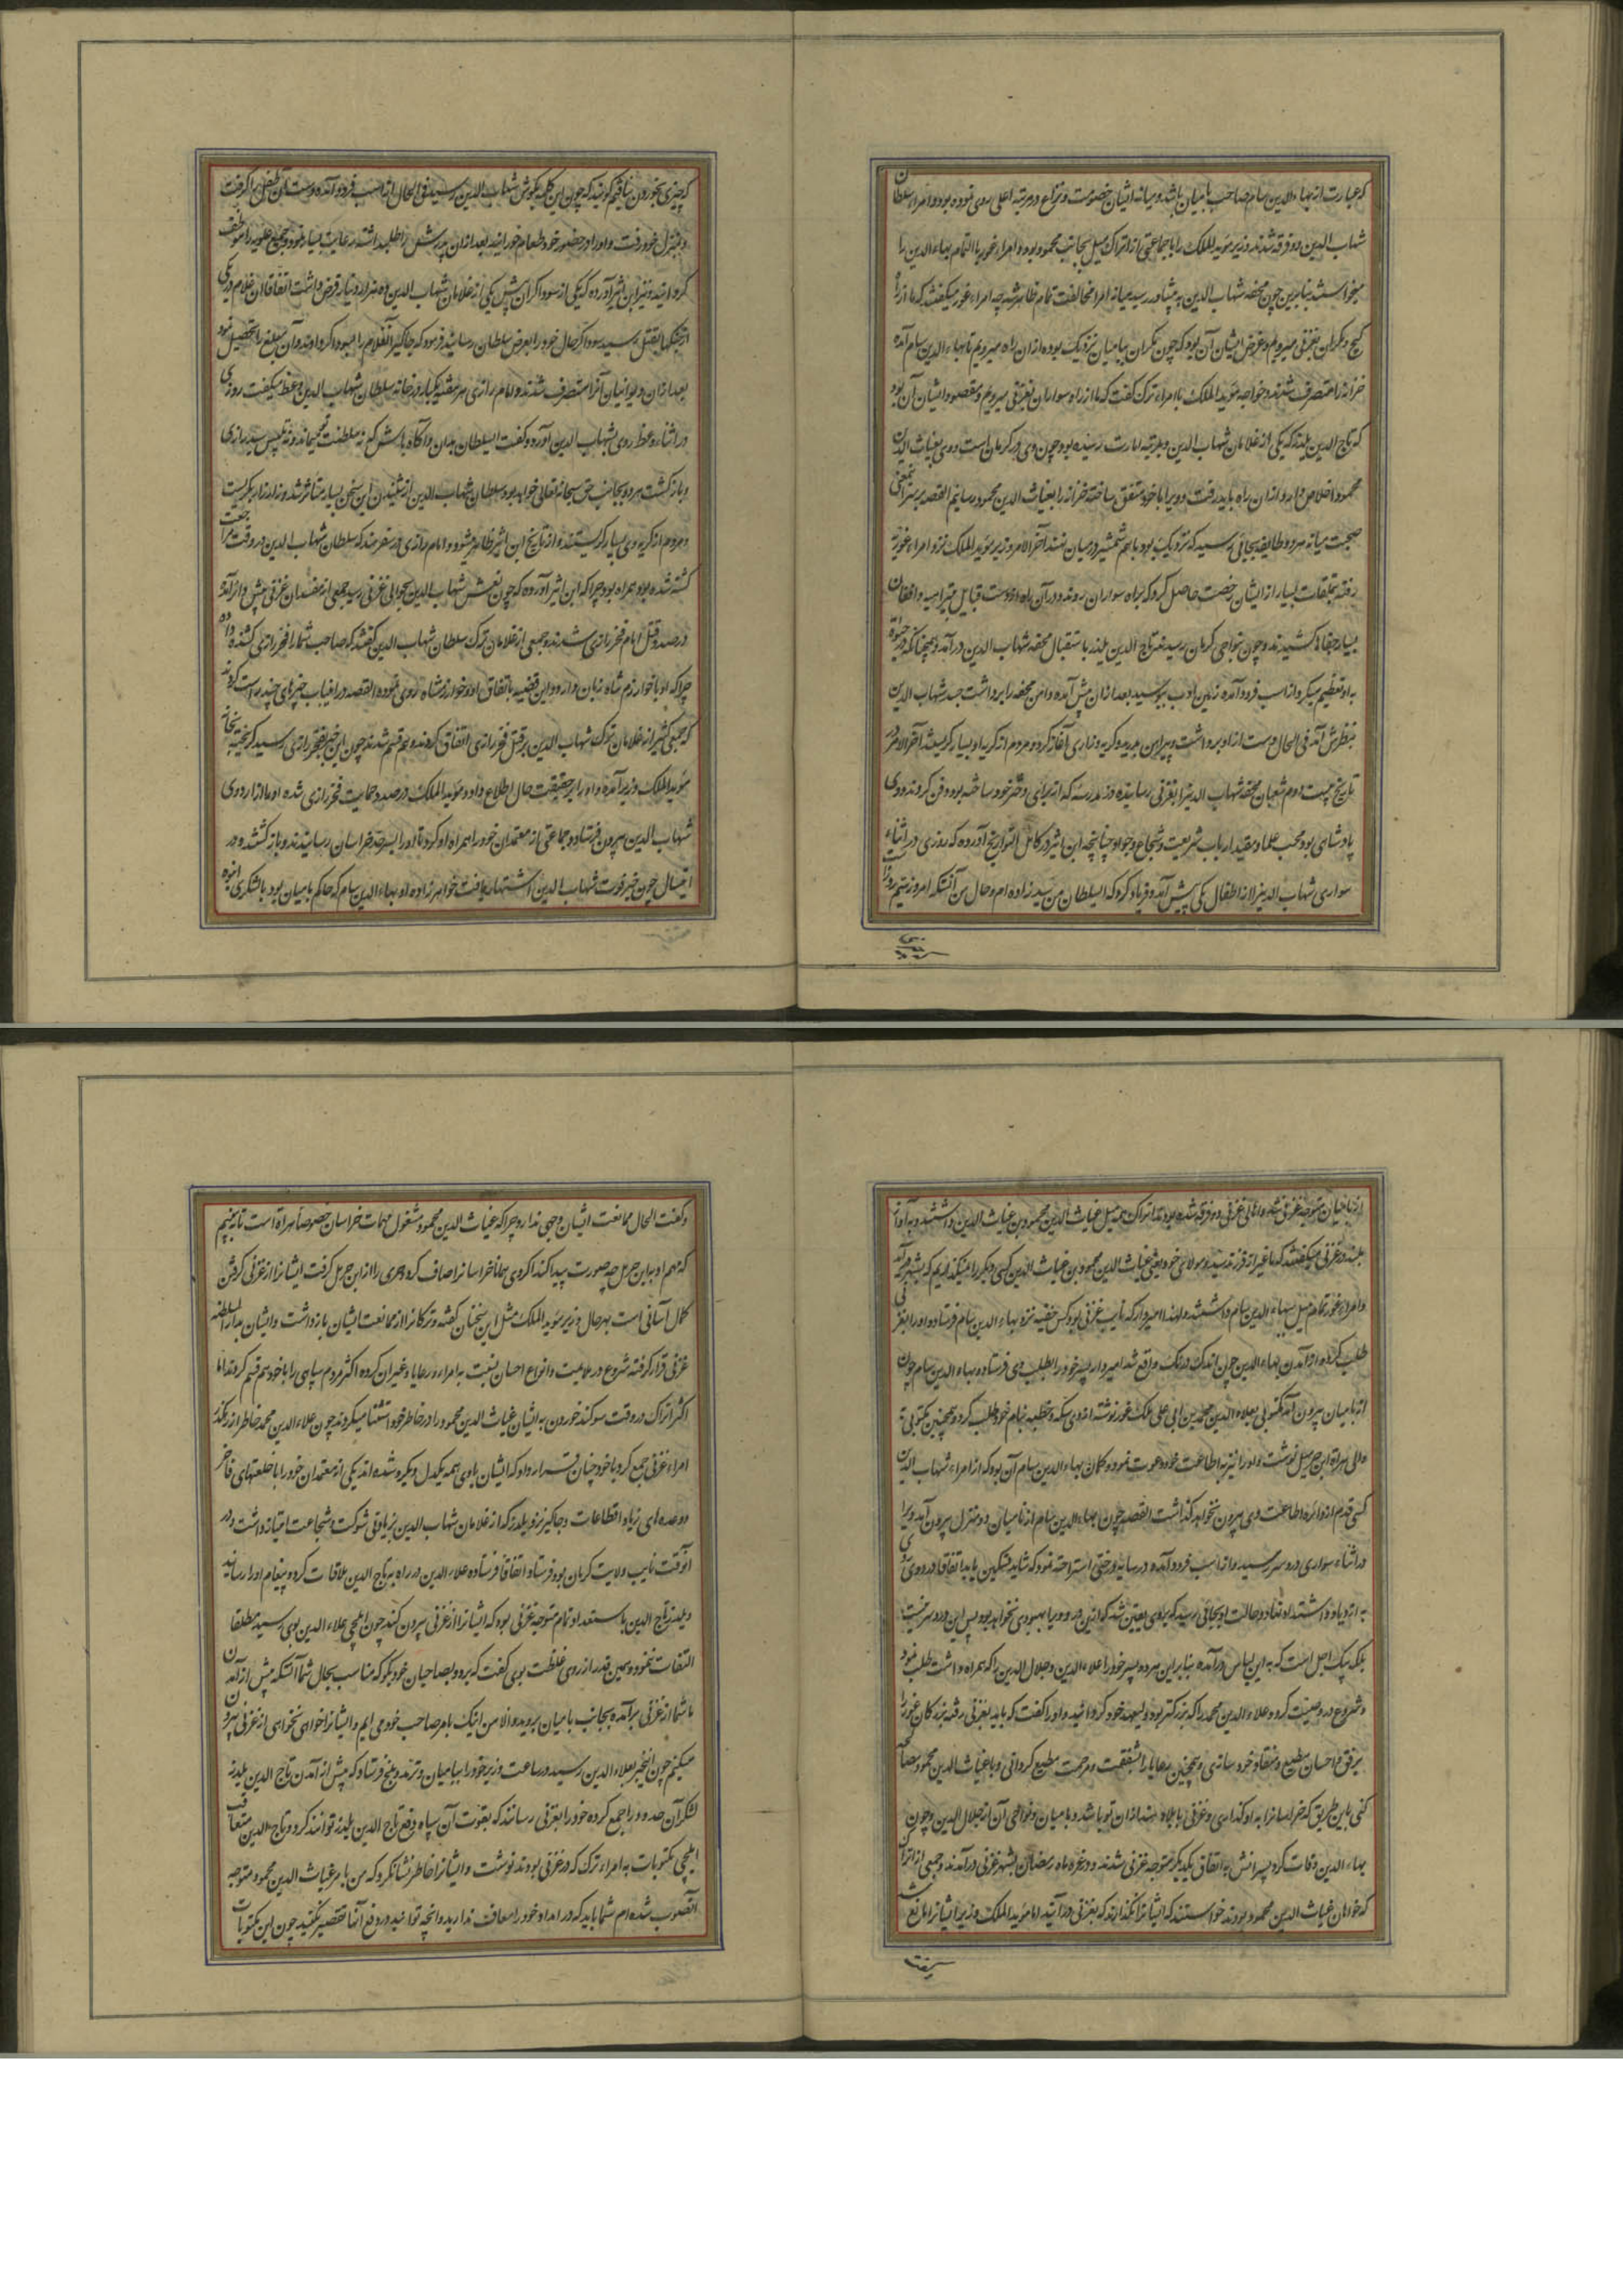 که عبارت از بهاء الدین سام صاحب بامیان باشد و میانه ایشان خصومت و نزاع در مرتبه اعلی روی نموده بود و امراء سلطان
شهاب الدین دو فرقه شدند وزیر موید الملک را با جماعتی از اتراک میل بجانب محمود بود و امراء غور باالتمام بهاء الدین را
میخواستند بنابرین چون محفه شهاب الدین به پشاور رسید میانه امرا مخالفت تمام ظاهر شد چه امراء غور میگفتند که ما از راه
کج و مکران بغزنی میرویم و غرض ایشان آن بود که چون مکران ببامیان نزدیک بوده از آن راه میرویم تا بهاء الدین سام آمده
خزانه را متصرف شد و خواجه موید الملک با امراء ترک گفت که ما از راه سواران بغزنی میرویم و مقصود ایشان آن بود
که تاج الدین یلدز که یکی از غلامان شهاب الدین و بمرتبه امارت رسیده بود چون وی در کرمان است و وی بغیاث الدین
محمود اخلاص دارد از آن راه باید رفت و ویرا با خود متفق ساخته خزانه را بغیاث الدین محمود رسانیم القصه بر سر اینمعنی
صحبت میانه هر دو طایفه بجائی رسید که نزدیک بود باهم شمشیر در میان نهند آخر الامر وزیر موید الملک نزد امراء غوریه
رفته بتملقات بسیار از ایشان رخصت حاصل کرد که براه سواران روند و در آن راه از دست قبایل تیراهیه و افغان
بسیار جفاها کشیدند و چون بنواحی کرمان رسیدند تاج الدین یلدز باستقبال محفه شهاب الدین درآمد و همچنانکه در حیوة
به او تعظیم میکرد از اسب فرود آمده زمین ادب ببوسید بعد از آن پیش آمده دامن محفه را برداشت جسد شهاب الدین
بنظرش آمد فی الحال دست از او برداشت و پیراهن بدرید و گریه و زاری آغاز کرد و مردم از گریه او بسیار گریستند آخر الامر در
تاریخ بیست دوم شعبان محفه شهاب الدین را بغزنی رسانیده در مدرسه که از برای دختر خود ساخته بود دفن کردند و وی
پادشاهی بود محب علما و مقید ارباب شریعت و شجاع و جواد چنانچه ابن اثیر در کامل التواریخ آورده که روزی در اثناء
سواری شهاب الدین را از اطفال یکی پیش آمد و فریاد کرد که ایسلطان من سید زاده ام و حال من آنستکه امروز بیتم روزاست
که چیزی بخوردن نیافتیم گویند که چون این کلمه بگوش شهاب الدین رسید فی الحال از اسب فرود آمده دست آن طفل را گرفت
و بمنزل خود رفت و او را در حضور خود طعام خورانید بعد از آن پدرشرا طلبداشته رعایت بسیار نمود و جمیع علویه را موظف
گردانید و نیز ابن اثیر آورده که یکی از سوداگران پیش یکی از غلامان شهاب الدین ده هزار دینار قرض داشت اتفاقا آن غلام در یکی
از جنگها بقتل رسید سوداگر حال خود را بعرض سلطان رسانید فرمود که جاگیر آنغلام را بسوداگر دادند و آن مبلغ را تحصیل نمود
بعد از آن دیوانیان آنرا متصرف شدند و امام رازی هر هفته یکبار در خانه سلطان شهاب الدین وعظ میگفت روزی
در اثناء وعظ روی بشهاب الدین آورده و گفت ایسلطان بدان و آگاه باش که نه سلطنت تو میماند و نه تلبیس سید رازی
و بازگشت هر دو بجانب حق سبحانه تعالی خواهد بود سلطان شهاب الدین از شنیدن این سخن بسیار متاثر شد و زار زار بگریست
و مردم از گریه وی بسیار گریستند و از تاریخ ابن اثیر ظاهر میشود و امام رازی در سفر هند که سلطان شهاب الدین در وقت مراجعت
کشته شده بود همراه بود چرا که ابن اثیر آورده که چون نعش شهاب الدین بحوالی غزنی رسید جمعی از مفسدان غزنی پیش دار آمده
در صدد قتل امام فخر رازی شدند و جمعی از غلامان ترک سلطان شهاب الدین گفتند که صاحب شما را فخر رازی کشنده داده
چرا که او با خوارزم شاه زبان دارد و این قضیه باتفاق او و خوارزمشاه روی نموده القصه در این باب خبرهای چند راست کردند
که جمعی کثیر از غلامان ترک شهاب الدین بر قتل فخر رازی اتفاق کردند و هم قسم شدند چون این خبر بفخر رازی رسید گریخته بخانه
موید الملک وزیر آمده و او را بر حقیقت حال اطلاع داد و موید الملک در صدد حمایت فخر رازی شده او را از اردوی
شهاب الدین بیرون فرستاد و جماعتی از معتمدان خود را همراه او کرد تا او را بسرحد خراسان رسانیدند و بازگشتند و در
اینسال چون خبر فوت شهاب الدین اشتهار یافت خواهرزاده او بهاء الدین سام که حاکم بامیان بود با لشکری انبوه
از بامیان متوجه غزنی شد و اهالی غزنی دو فرقه شده بودند اتراک همه میل غیاث الدین محمود بن غیاث الدین داشتند و به آواز
بلند در غزنی میگفتند که ما غیر از فرزند سید و مولای خود یعنی غیاث الدین محمود بن غیاث الدین کسی دیگر را نمیگذاریم که بشهر درآید
و امراء غور تمام میل ببهاء الدین سام داشتند و لهذا امیر دار که نایب غزنی بود کس خفیه نزد بهاء الدین سام فرستاد و او را بغزنی
طلب کرد و از آمدن بهاء الدین چون اندک درنگ واقع شد امیر دار پسر خود را بطلب وی فرستاد و بهاء الدین سام چون
از بامیان بیرون آمد مکتوبی بعلاء الدین محمد بن ابی علی ملک غور نوشته از وی سکه و خطبه بنام خود طلب کرد و همچنین مکتوبی به
والی هراة ابن خرمیل نوشت و او را نیز به اطاعت خود دعوت نمود و گمان بهاء الدین سام آن بود که از امراء شهاب الدین
کسی قدم از دائره اطاعت وی بیرون نخواهد گذاشت القصه چون بهاء الدین سام از بامیان دو منزل بیرون آمد ویرا
در اثناء سواری درد سر رسید و از اسب فرود آمده در سایه درختی استراحت نمود که شاید تسکین یابد اتفاقا درد وی
به ازدیاد و اشتداد نهاد و حالت او بجائی رسید که بروی یقین شد که ازین درد ویرا بهبودی نخواهد بود پس این درد سر نیست
بلکه پیک اجل است که به این لباس درآمده بنابراین هر دو پسر خود را علاء الدین و جلال الدین را که همراه داشت طلب نمود
و شروع در وصیت کرد و علاء الدین محمد را که بزرگتر بود ولیعهد خود گردانید و او را گفت که باید بغزنی رفته بزرگان غور را
برفق و احسان مطیع و منقاد خود سازی و همچنین رعایا را بشفقت و مرحمت مطیع گردانی و با غیاث الدین محمود مصالحه
کنی باین طریق که خراسانرا به او گذاری و غزنی با بلاد هند از آن تو باشد و بامیان و نواحی آن از جلال الدین و چون
بهاء الدین وفات کرد پسرانش به اتفاق یکدیگر متوجه غزنی شدند و در غره ماه رمضان بشهر غزنی درآمدند و جمعی از اتراک
که خواهان غیاث الدین محمود بودند خواستند که ایشانرا نگذارند که بغزنی درآیند اما موید الملک وزیر ایشانرا مانع شد
و گفت الحال ممانعت ایشان وجهی ندارد چرا که غیاث الدین محمود مشغول مهمات خراسان خصوصاً هراة است تا ببینیم
که مهم او به ابن خرمیل چه صورت پیدا کند اگر وی همانا خراسانرا صاف کرد و هری را از ابن خرمیل گرفت ایشانرا از غزنی کردن
کمال آسانی است بهرحال وزیر موید الملک مثل این سخنان گفته و ترکانرا از ممانعت ایشان بازداشت و ایشان بدار السلطنه
غزنی قرار گرفته شروع در رعایت و انواع احسان نسبت به امراء و رعایا و غیر آن کرده اکثر مردم سپاهی را با خود هم قسم کردند اما
اکثر اتراک در وقت سوگند خوردن به ایشان غیاث الدین محمود را در خاطر خود استثنا میکردند چون علاء الدین محمد خاطر از رهگذر
امراء غزنی جمع کرد با خود چنان قرار داد که ایشان با وی همه یکدل و یکرو شده اند یکی از معتمدان خود را با خلعتهای فاخر
و وعده های زیاد و اقطاعات و جاگیر نزد یلدز که از غلامان شهاب الدین بزیادتی شوکت و شجاعت امتیاز داشت و در
آنوقت نایب ولایت کرمان بود فرستاد و اتفاقا فرستاده علاء الدین در راه به تاج الدین ملاقات کرد و پیغام او را رسانید
و یلدز تاج الدین با ستعداد تمام متوجه غزنی بود که ایشانرا از غزنی بیرون کند چون ایلچی علاء الدین بوی رسید مطلقا
التفات ننمود و همین قدر از روی غلظت بوی گفت که برو و بصاحبان خود بگو که مناسب بحال شما آنستکه پیش از آمدن
ما شما از غزنی برآمده بجانب بامیان بروید و الا من اینک بامر صاحب خود می آیم و ایشانرا خواهی نخواهی از غزنی بیرون
میکنم چون اینخبر بعلاء الدین رسید در ساعت وزیر خود را ببامیان و ترمد و بلخ فرستاد که پیش از آمدن تاج الدین یلدز
لشکر آن حدود را جمع کرده خود را بغزنی رسانند که بقوت آن سپاه دفع تاج الدین یلدز توانند کرد و تاج الدین متعاقب
ایلچی مکتوبات به امراء ترک که در غزنی بودند نوشت و ایشانرا خاطر نشان کرد که من بامر غیاث الدین محمود متوجه
آنصوب شده ام شما باید که در امداد خود را معاف ندارید و آنچه توانید در دفع آنها تقصیر نکنید چون این مکتوبات